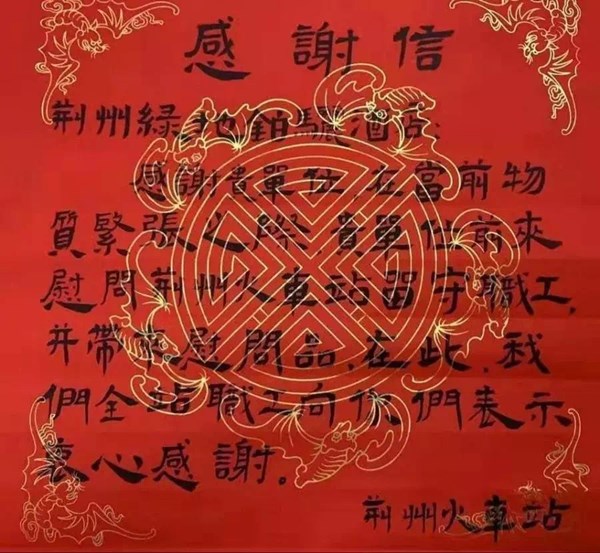 感謝信
荆州綠地鉑驪酒店:
感謝貴單位,在當前物
質緊張之際,貴單位前來
慰問荆州火車站留守職工,
并帶來慰問品,在此,我
們全站職工向你們表示
衷心感謝。
荆州火車站